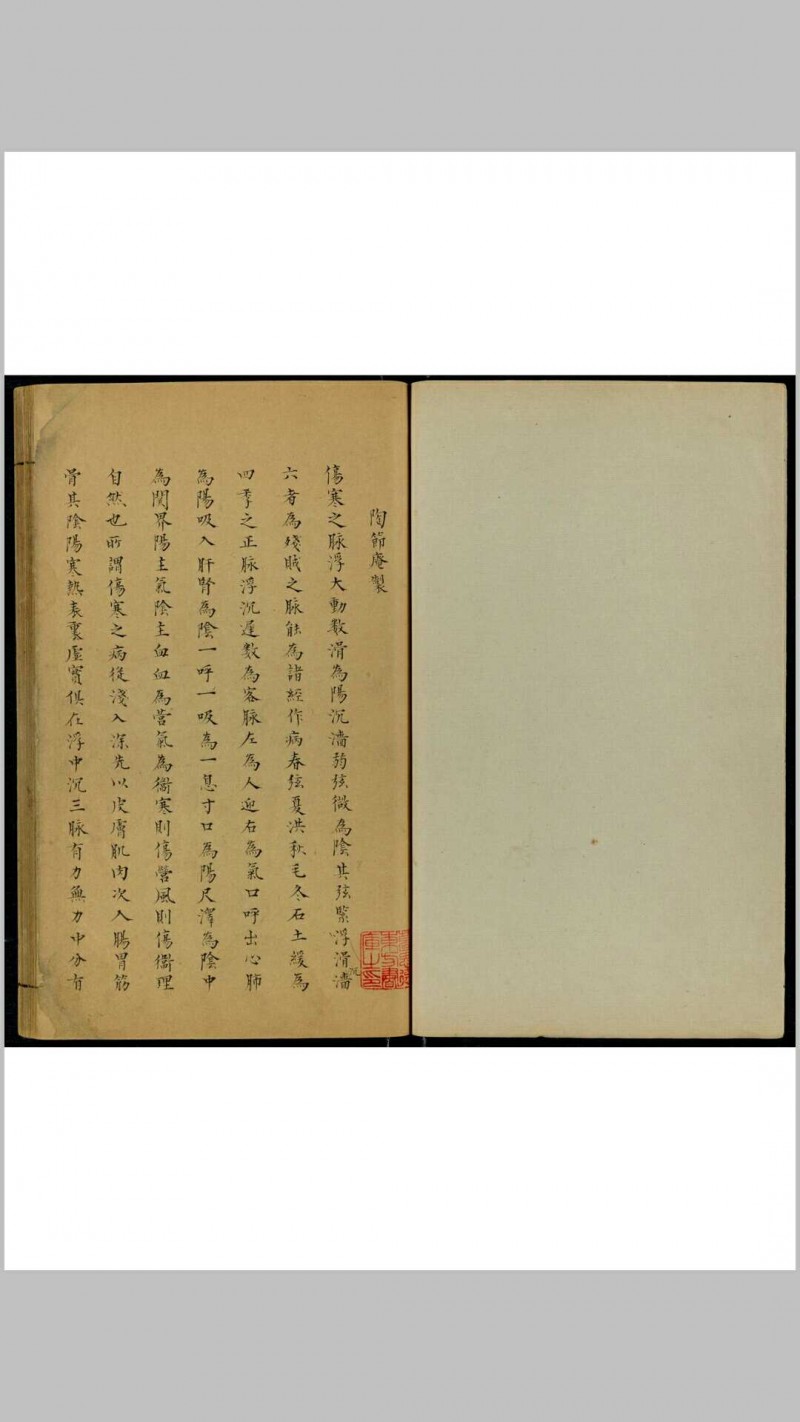 陶節庵製
傷寒之脉浮大動数滑為陽沉濇弱弦微為陰其弦緊浮滑沉濇
六者為殘賊之脉能為諸經作病春弦夏洪秋毛冬石土緩為
四季之正脉浮沉遲數為客脉左為人迎右為氣口呼出心肺
為陽吸入肝腎為陰一呼一吸為一息寸口為陽尺澤為陰中
為関界陽主氣陰主血血為营氣為衛寒則傷營風則傷衛理
自然也所謂傷寒之病從淺入深先以皮膚肌肉次入腸胃筋
骨其陰陽寒熱表裏虚實俱在浮中沉三脉有力無力中分有